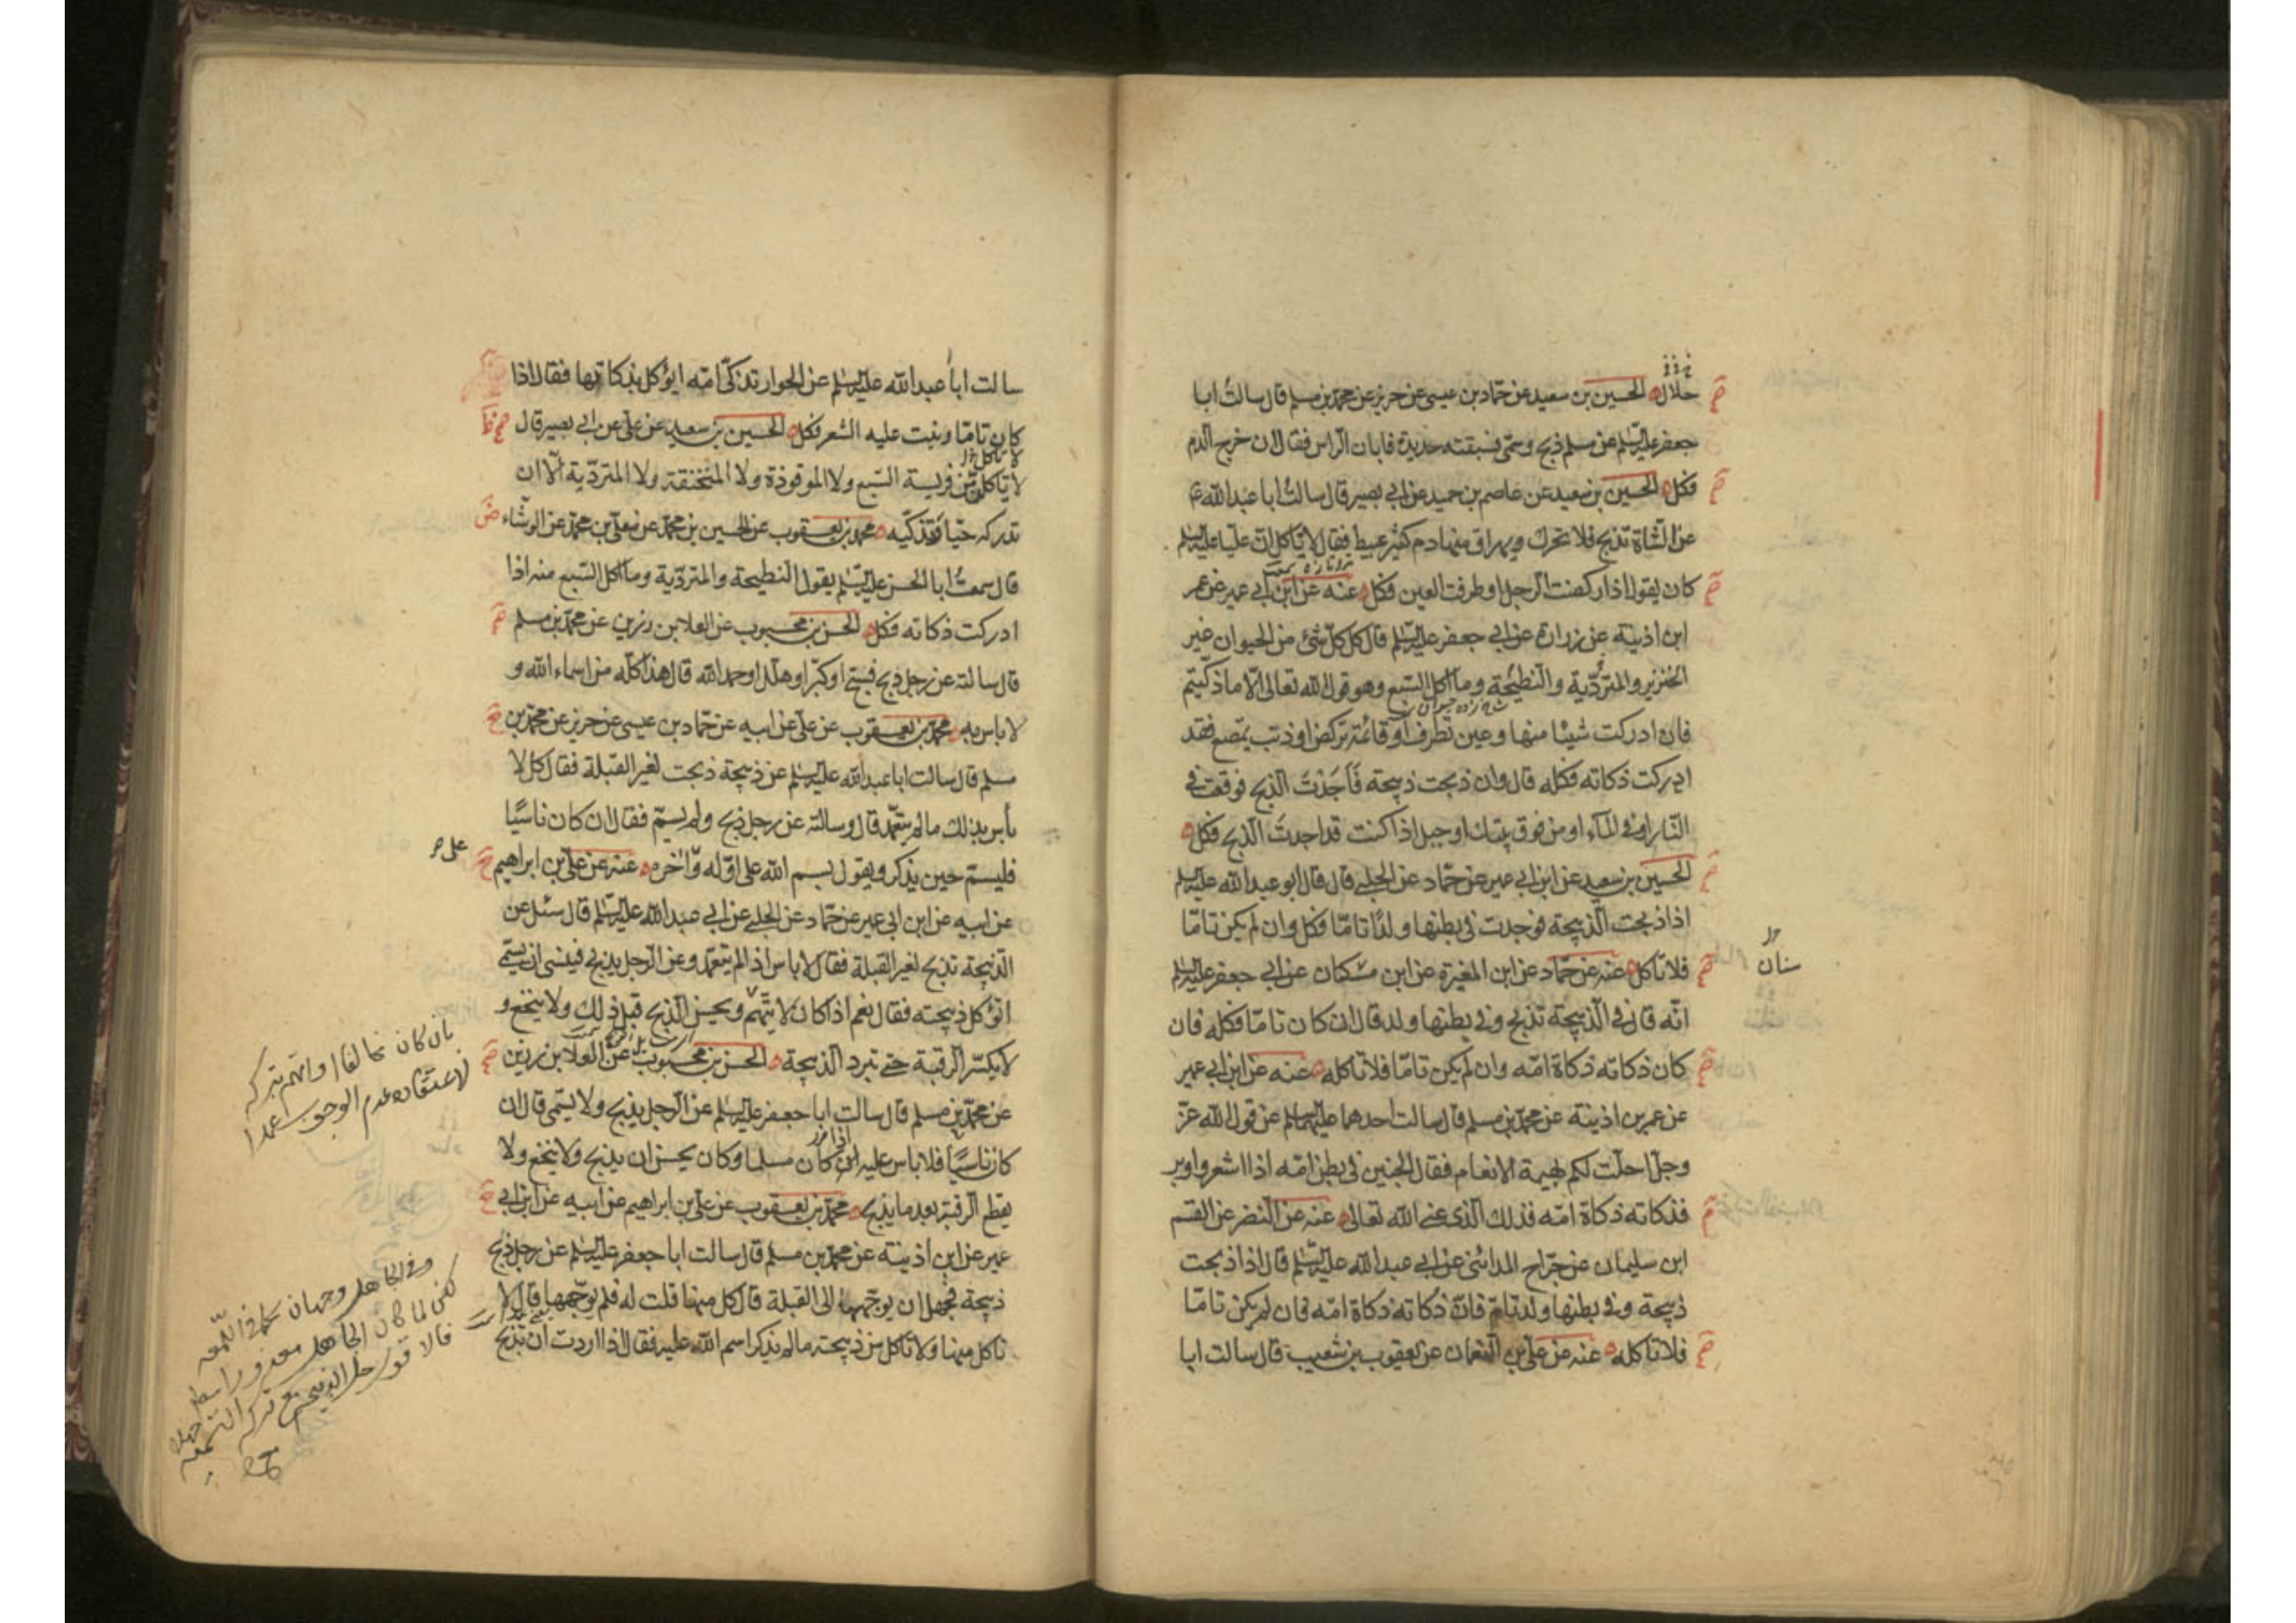 حلال الحسين بن سعيد عن حمّاد بن عيسى عن حريز عن محمّد بن مسلم قال سالتُ ابا
جعفر عليه السّلم عن مسلم ذبح وسمّى فسبقته حديدة فابان الراس فقال ان خرج الدم
فكل الحسين بن سعيد عن عاصم بن حميد عن ابى بصير قال سالتُ ابا عبد الله ع
عن الشّاة تذبح فلا تحرك ويهراق منها دم كثير عبيط فقال لا تاكل انّ عليا عليه السلم
كان يقول اذا ركضت الرجل او طرفت العين فكل عنه عن ابن ابى عمير عن عمر
ابن اذينة عن زرارة عن ابى جعفر عليه السّلم قال كل كلّ شئ من الحيوان غير
الخنزير والمتردّية والنطيحة وما اكل السّبع وهو قول الله تعالى الّا ما ذكّيتم
فان ادركت شيئا منها وعين تطرف او قائمة تركض او ذنب يمصع فقد
ادركت ذكاته فكله قال وان ذبحت ذبيحة فَاَجَدْتَ الذبح فوقعت فى
النّار او فى المآء او من فوق بيتك او جبل اذا كنت قد اجدتَ الذبح فكل
الحسين بن سعيد عن ابن ابى عمير عن حمّاد عن الحلبى قال قال ابو عبد الله عليه السلم
اذا ذبحت الذّبيحة فوجدت فى بطنها ولدًا تامّا فكل وان لم يكن تامّا
فلا تاكل عنه عن حمّاد عن ابن المغيرة عن ابن مسكان عن ابى جعفر عليه السلم
سنان
انّه قال فى الذّبيحة تذبح وفى بطنها ولد قال ان كان تامّا فكله فان
كان ذكاته ذكاة امّه وان لم يكن تامّا فلا تاكله عنه عن ابن ابى عمير
عن عمر بن اذينة عن محمّد بن مسلم قال سالت احدهما عليهما السلم عن قول الله عزّ
وجلّ احلّت لكم بهيمة الانعام فقال الجنين فى بطن امّه اذا اشعر واوبر
فذكاته ذكاة امّه فذلك الّذى عنى الله تعالى عنه عن النّضر عن القسم
ابن سليمان عن جرّاح المدائنى عن ابى عبد الله عليه السّلم قال اذا ذبحت
ذبيحة وفى بطنها ولد تامّ فانّ ذكاته ذكاة امّه فان لم يكن تامّا
فلا تاكله عنه عن علىّ بن النّعمان عن يعقوب بن شعيب قال سالت ابا
سالت اباُ عبد الله عليه السلم عن الحوار تذكّى امّه ايؤكل بذكاتها فقال اذا
كان تامّا ونبت عليه الشعر فكل الحسين بن سعيد عن علىّ عن ابى بصير قال
لا تاكل
لا تاكل من فريسة السّبع ولا الموقوذة ولا المنخنقة ولا المتردّية الّا ان
تدركه حيّا فَتذكّيه محمّد بن يعقوب عن الحسين بن محمّد عن معلّى بن محمّد عن الوشّاء
قال سمعتُ ابا الحسن عليه السّلم يقول النطيحة والمتردّية وما اكل السّبع منه اذا
ادركت ذكاته فكل الحسن بن محبوب عن العلا بن رزين عن محمّد بن مسلم
قال سالته عن رجل ذبح فسبّح او كبّر او هلّل او حمد الله قال هذا كلّه من اسماء الله و
لا باس به محمّد بن يعقوب عن علىّ عن ابيه عن حمّاد بن عيسى عن حريز عن محمّد بن
مسلم قال سالت ابا عبد الله عليه السلم عن ذبيحة ذبحت لغير القبلة فقال كل لا
بأس بذلك ما لم يتعمّد قال وسالته عن رجل ذبح ولم يسمّ فقال ان كان ناسيًا
فليسمّ حين يذكر ويقول بسم الله على اوّله وآخره عنه عن علىّ بن ابراهيم
على
عن ابيه عن ابن ابى عمير عن حمّاد عن الحلبى عن ابى عبد الله عليه السّلم قال سئل عن
الذّبيحة تذبح لغير القبلة فقال لا باس اذا لم يتعمّد وعن الرجل يذبح فينسى ان يسمّى
اتؤكل ذبيحته فقال نعم اذا كان لا يتّهم ويحسن الذّبح قبل ذلك ولا ينخع و
لا يكسّر الرقبة حتى تبرد الذّبيحة الحسن بن محبوب عن العلا بن رزين
عن محمّد بن مسلم قال سالت ابا جعفر عليه السّلم عن الرّجل يذبح ولا يسمّى قال ان
كان ناسيًا فلا باس عليه ان كان مسلما وكان يحسن ان يذبح ولا ينخع ولا
اذا
يقطع الرقبة بعد ما يذبح محمّد بن يعقوب عن علىّ بن ابراهيم عن ابيه عن ابن ابى
عمير عن ابن اذينة عن محمّد بن مسلم قال سالت ابا جعفر عليه السّلم عن رجل ذبح
ذبيحة فجهل ان يوجّهها الى القبلة قال كل منها قلت له فلم يوجّهها قال لا
تاكل منها ولا تاكل من ذبيحة ما لم يذكر اسم الله عليه فقال اذا اردت ان تذبح
بان كان مخالفا واتهم بتركه
لاعتقاده عدم الوجوب عمدا
وفى الجاهل وجهان كما فى اللمعه
لكن لما كان الجاهل معذورا
فالاقوى حل الذبيحة مع تركه التسمية جهلا